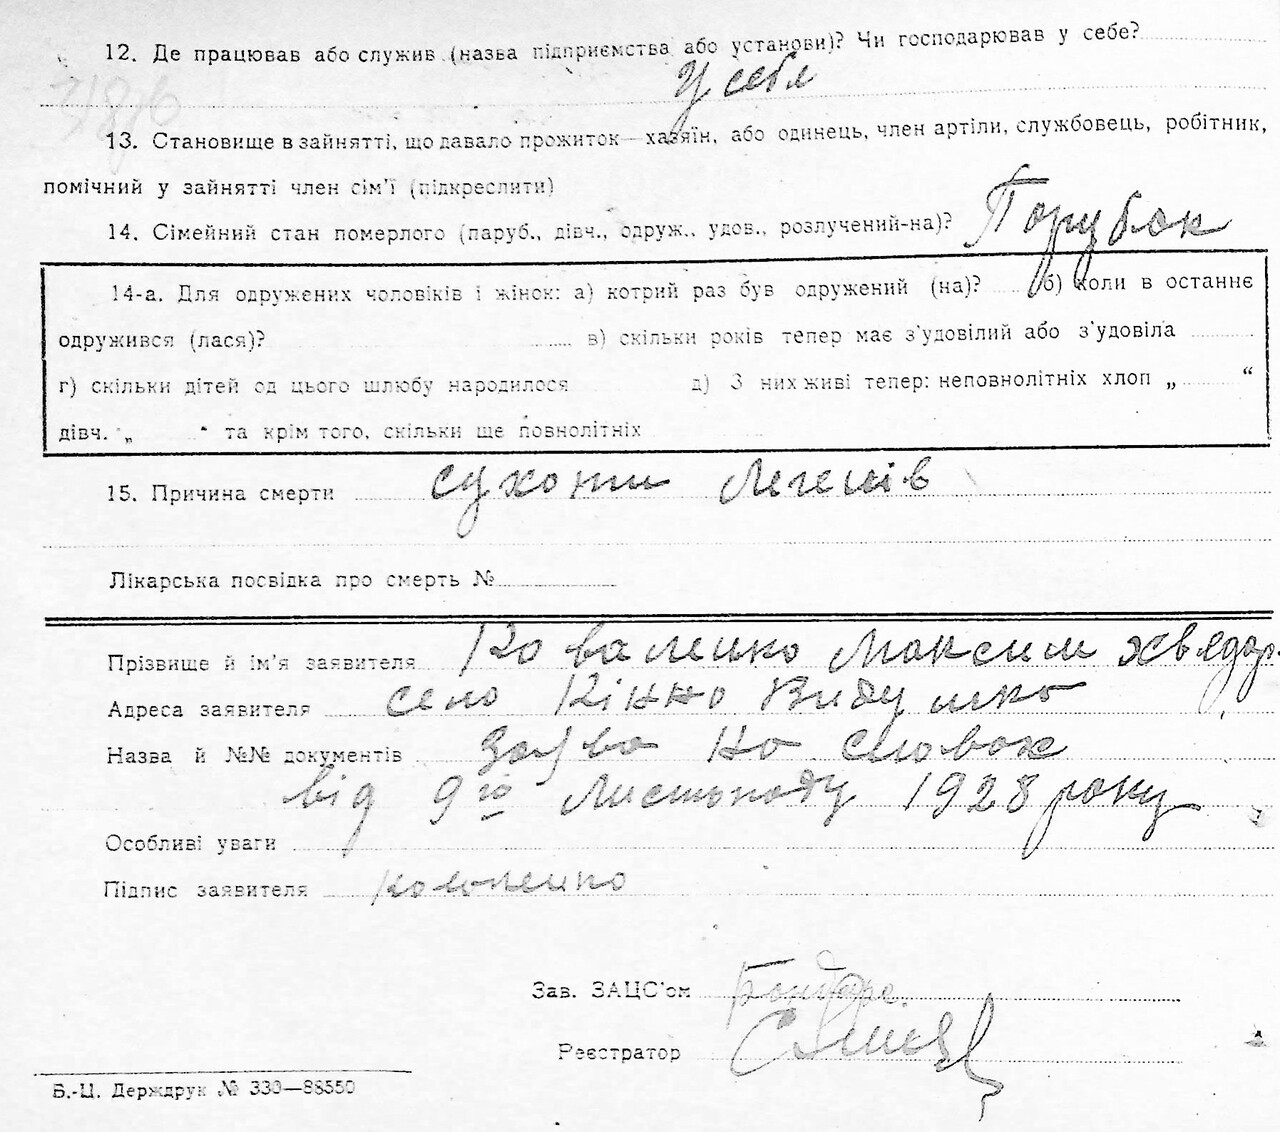 12. Де працював або служив (назва підприємства або установи)? Чи господарював у себе?
У себе
13. Становище в зайнятті, що давало прожиток—хазяїн, або одинець, член артіли, службовець, робітник,
помічний у зайнятті член сім'ї (підкреслити)
14. Сімейний стан померлого (паруб., дівч., одруж., удов., розлучений-на)? Порубок
14-а. Для одружених чоловіків і жінок: а) котрий раз був одружений (на)? б) коли в останнє
одружився (лася)? в) скільки років тепер має з'удовілий або з'удовіла
г) скільки дітей од цього шлюбу народилося д) З них живі тепер: неповнолітніх хлоп „ “
дівч. „ “ та крім того, скільки ще повнолітніх
15. Причина смерти сухоти Легенів
Лікарська посвідка про смерть №
Прізвище й ім'я заявителя Коваленко Максим Хведор.
Адреса заявителя село Кінно
Назва й №№ документів Заява на словах
від 9го Листопаду 1928 року
Особливі уваги
Підпис заявителя Коваленко
Зав. ЗАЦС'ом
Реєстратор
Б.-Ц. Держдрук № 330—88550